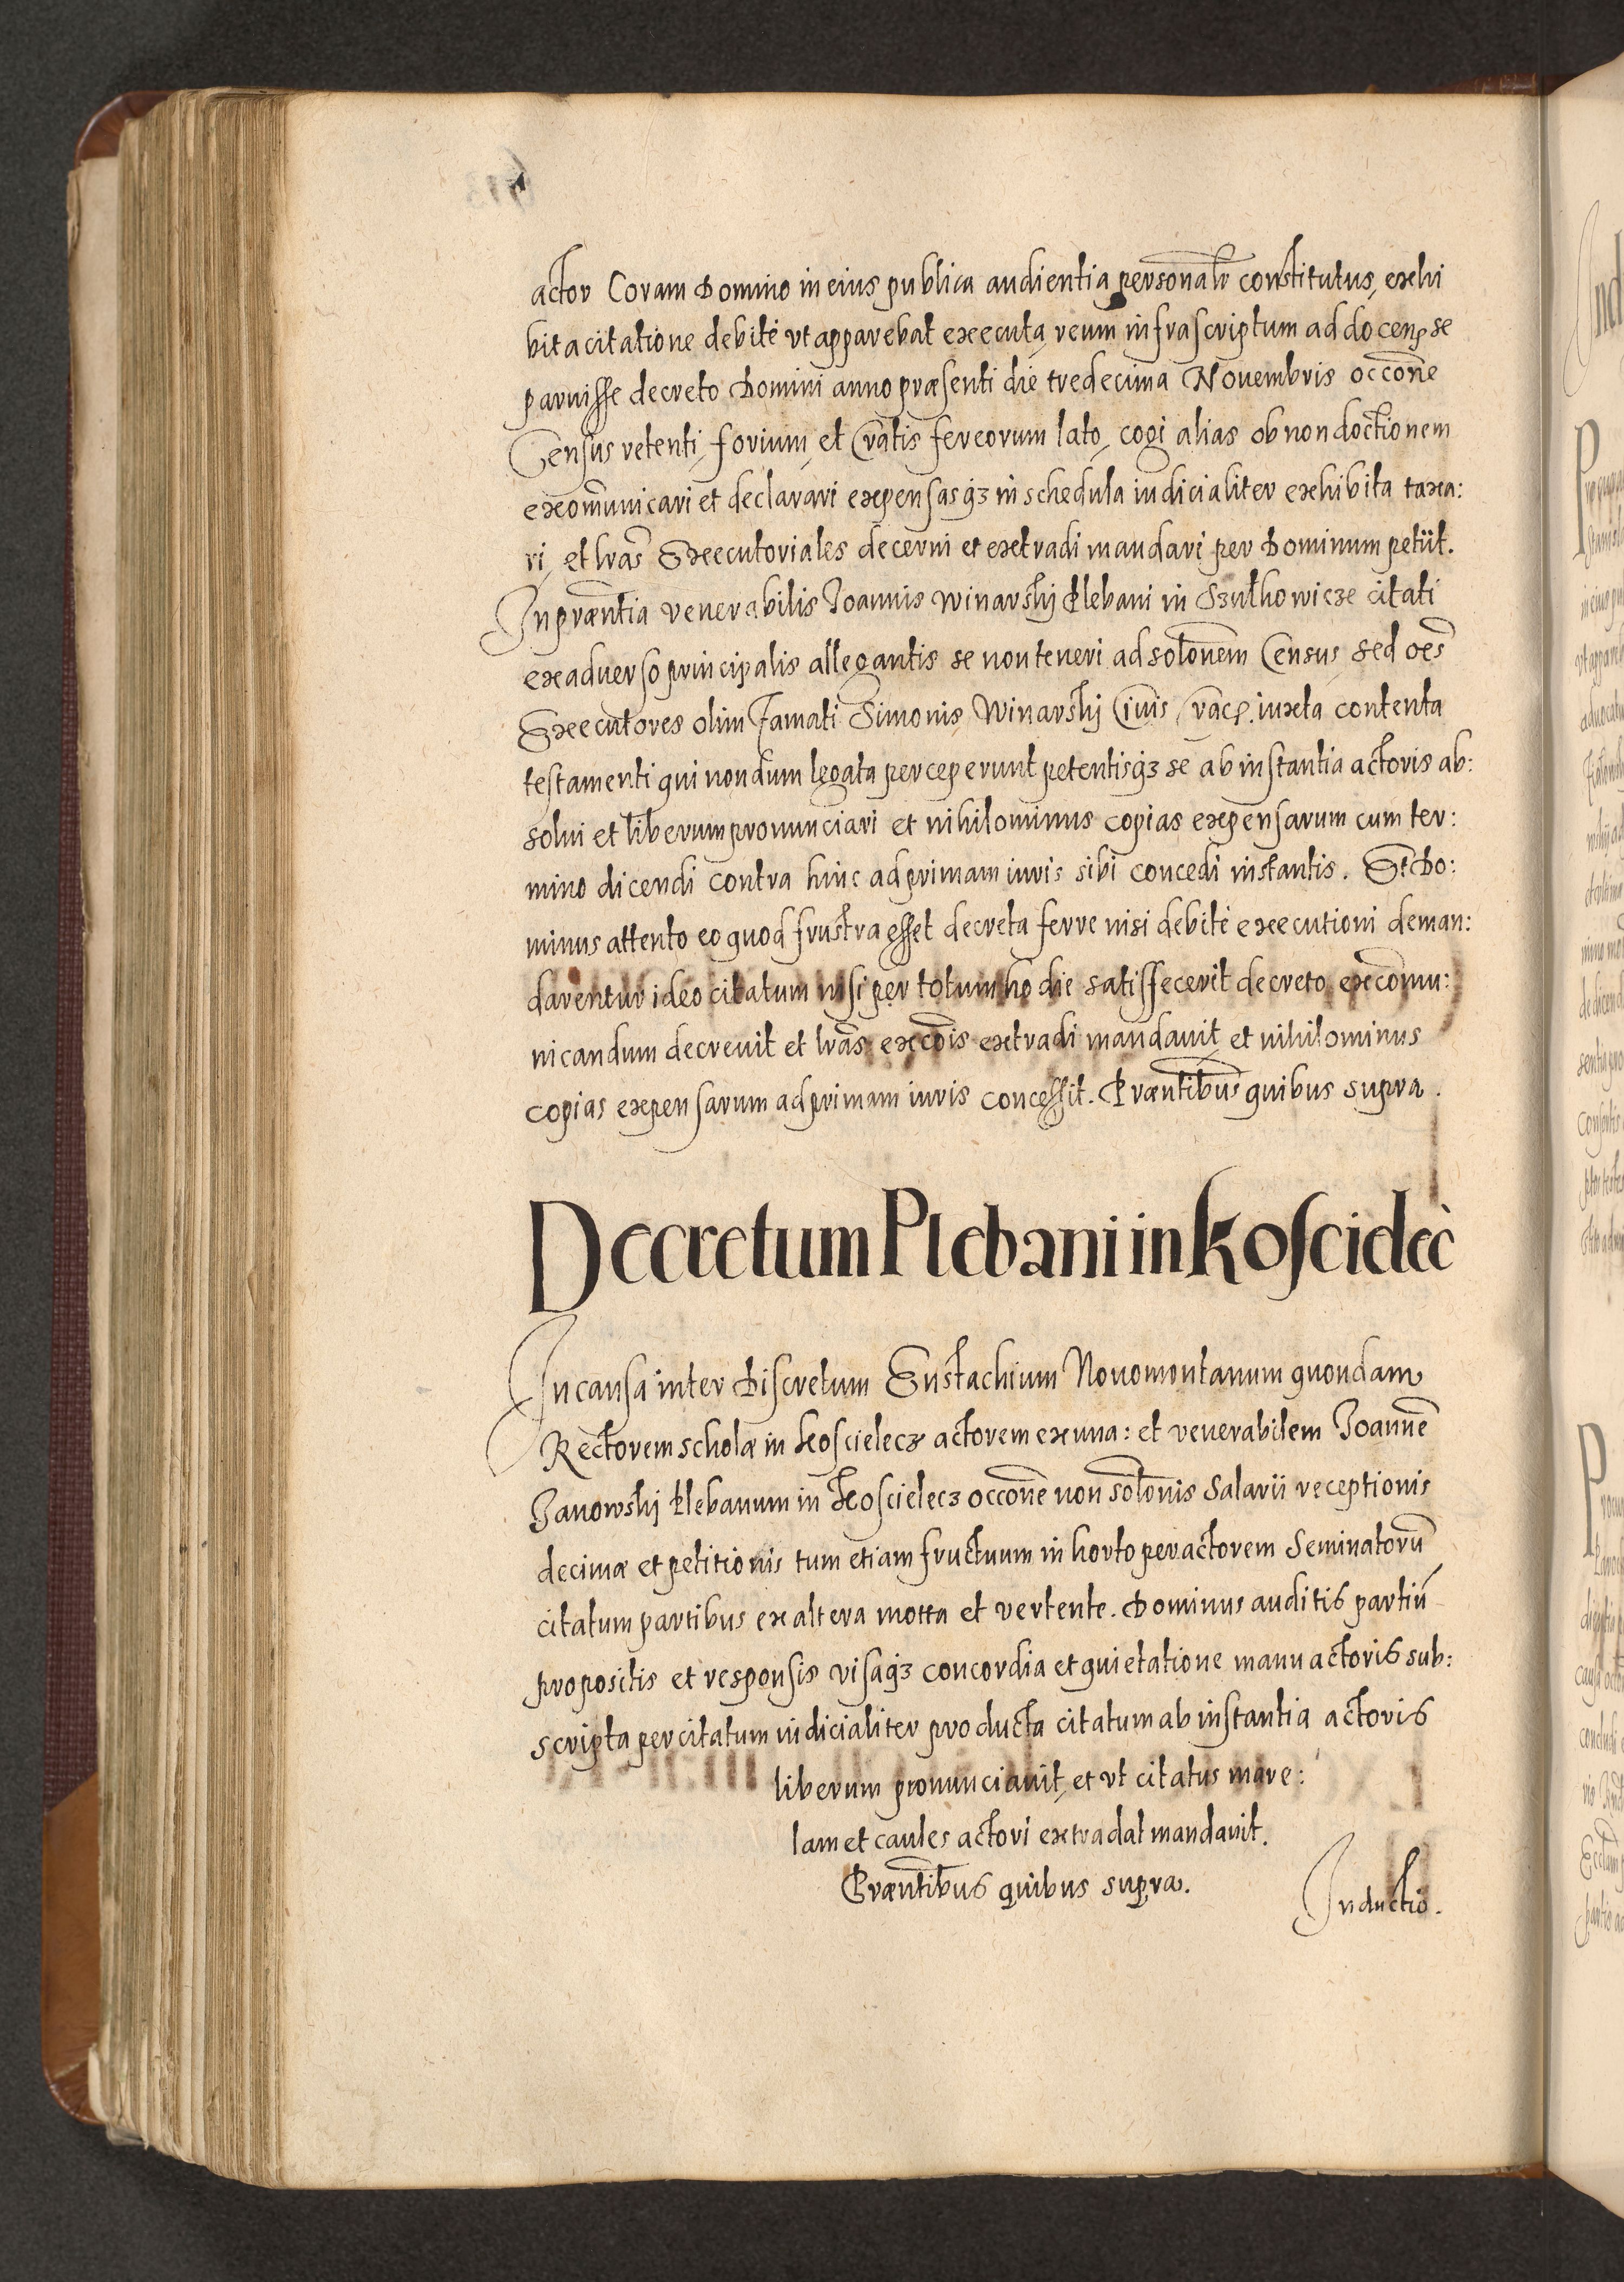 actor Coram Domino in eius publica audientia personalr constitutus, exhi
bita citatione debitè vt apparebat executa, reum infrascriptum ad docen se
paruisse decreto Domini anno præsenti die tredecima Nouembris occone
Census retenti, forium, et Cratis ferreorum lato, cogi alias ob non doctionem
excomunicari et declarari expensasqz in schedula iudicialiter exhibita taxa:
ri, et lras Executoriales decerni et extradi mandari per Dominum petiit.
In præntia venerabilis Joannis Winarskj Plebani in Szulkowicze citati
ex aduerso principalis allegantis se non teneri ad solonem Census sed oes
Executores olim famati Simonis Winarskj Ciuis Crac. iuxta contenta
testamenti qui nondum legata perceperunt petentisqz se ab instantia actoris ab:
solui et liberum pronunciari et nihilominus copias expensarum cum ter:
mino dicendi contra hinc ad primam iuris sibi concedi instantis. Et Do:
minus attento eo quod frustra esset decreta ferre nisi debitè executioni deman:
darentur ideo citatum nisi per totum hodie satisfecerit decreto, excomu:
nicandum decreuit et lras excois extradi mandauit, et nihilominus
copias expensarum ad primam iuris concessit. Præntibus quibus supra.
Decretum Plebani in Koscielec
In causa inter Discretum Eustachium Nouomontanum quondam
Rectorem scholæ in Koscielecz actorem ex una: et venerabilem Joanne
Janowskj Plebanum in Koscielecz occone non solonis Salarii receptionis
decimæ et petitionis tum etiam fructuum in horto per actorem Seminatoru
citatum partibus ex altera motta et vertente. Dominus auditis partiu
propositis et responsis visaqz concordia et quietatione manu actoris sub:
scripta per citatum iudicialiter producta citatum ab instantia actoris
liberum pronunciauit, et vt citatus mare:
lam et caules actori extradat mandauit.
Præntibus quibus supra.
Inductio.